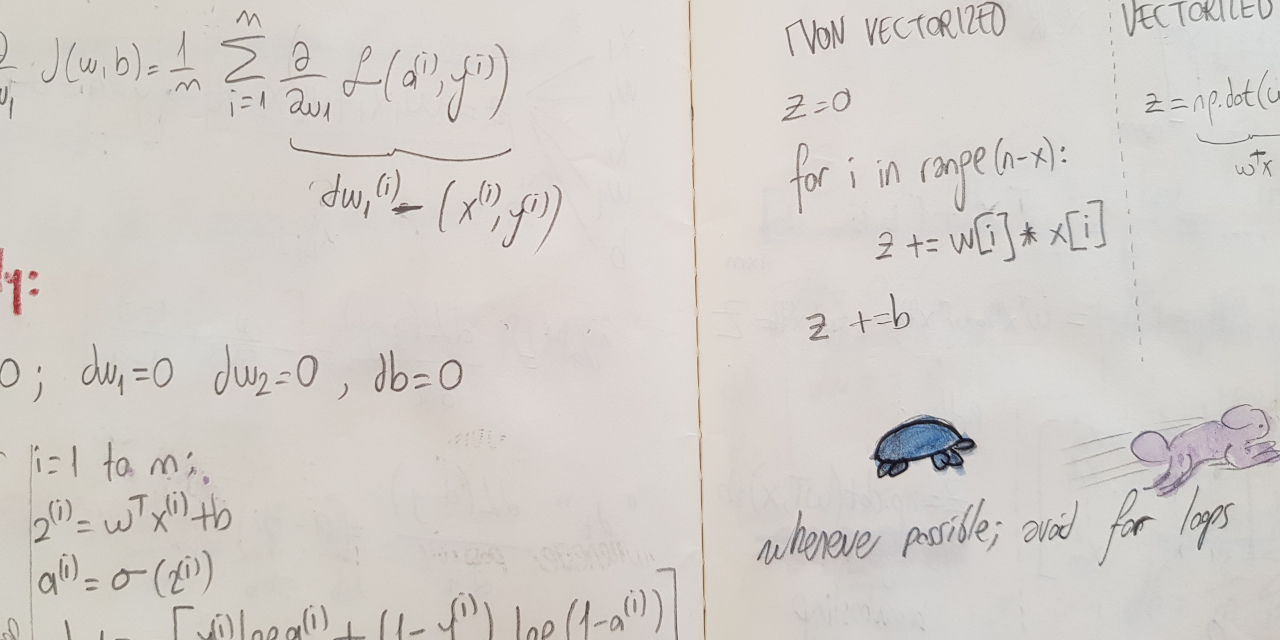 J(w,b) = 1/m Σ_{i=1}^{m} ∂/∂w1 ℒ(a^(i), y^(i))
dw1^(i) - (x^(i), y^(i))
y:
0; dw1=0 dw2=0, db=0
i=1 to m;
z^(i) = w^T x^(i) + b
a^(i) = σ(z^(i))
[y^(i) log a^(i) + (1-y^(i)) log(1-a^(i))]
NON VECTORIZED
z=0
for i in range(n-x):
z += w[i] * x[i]
z +=b
VECTORIZED
z = np.dot(w
w^T x
wheneve possible; avoid for loops